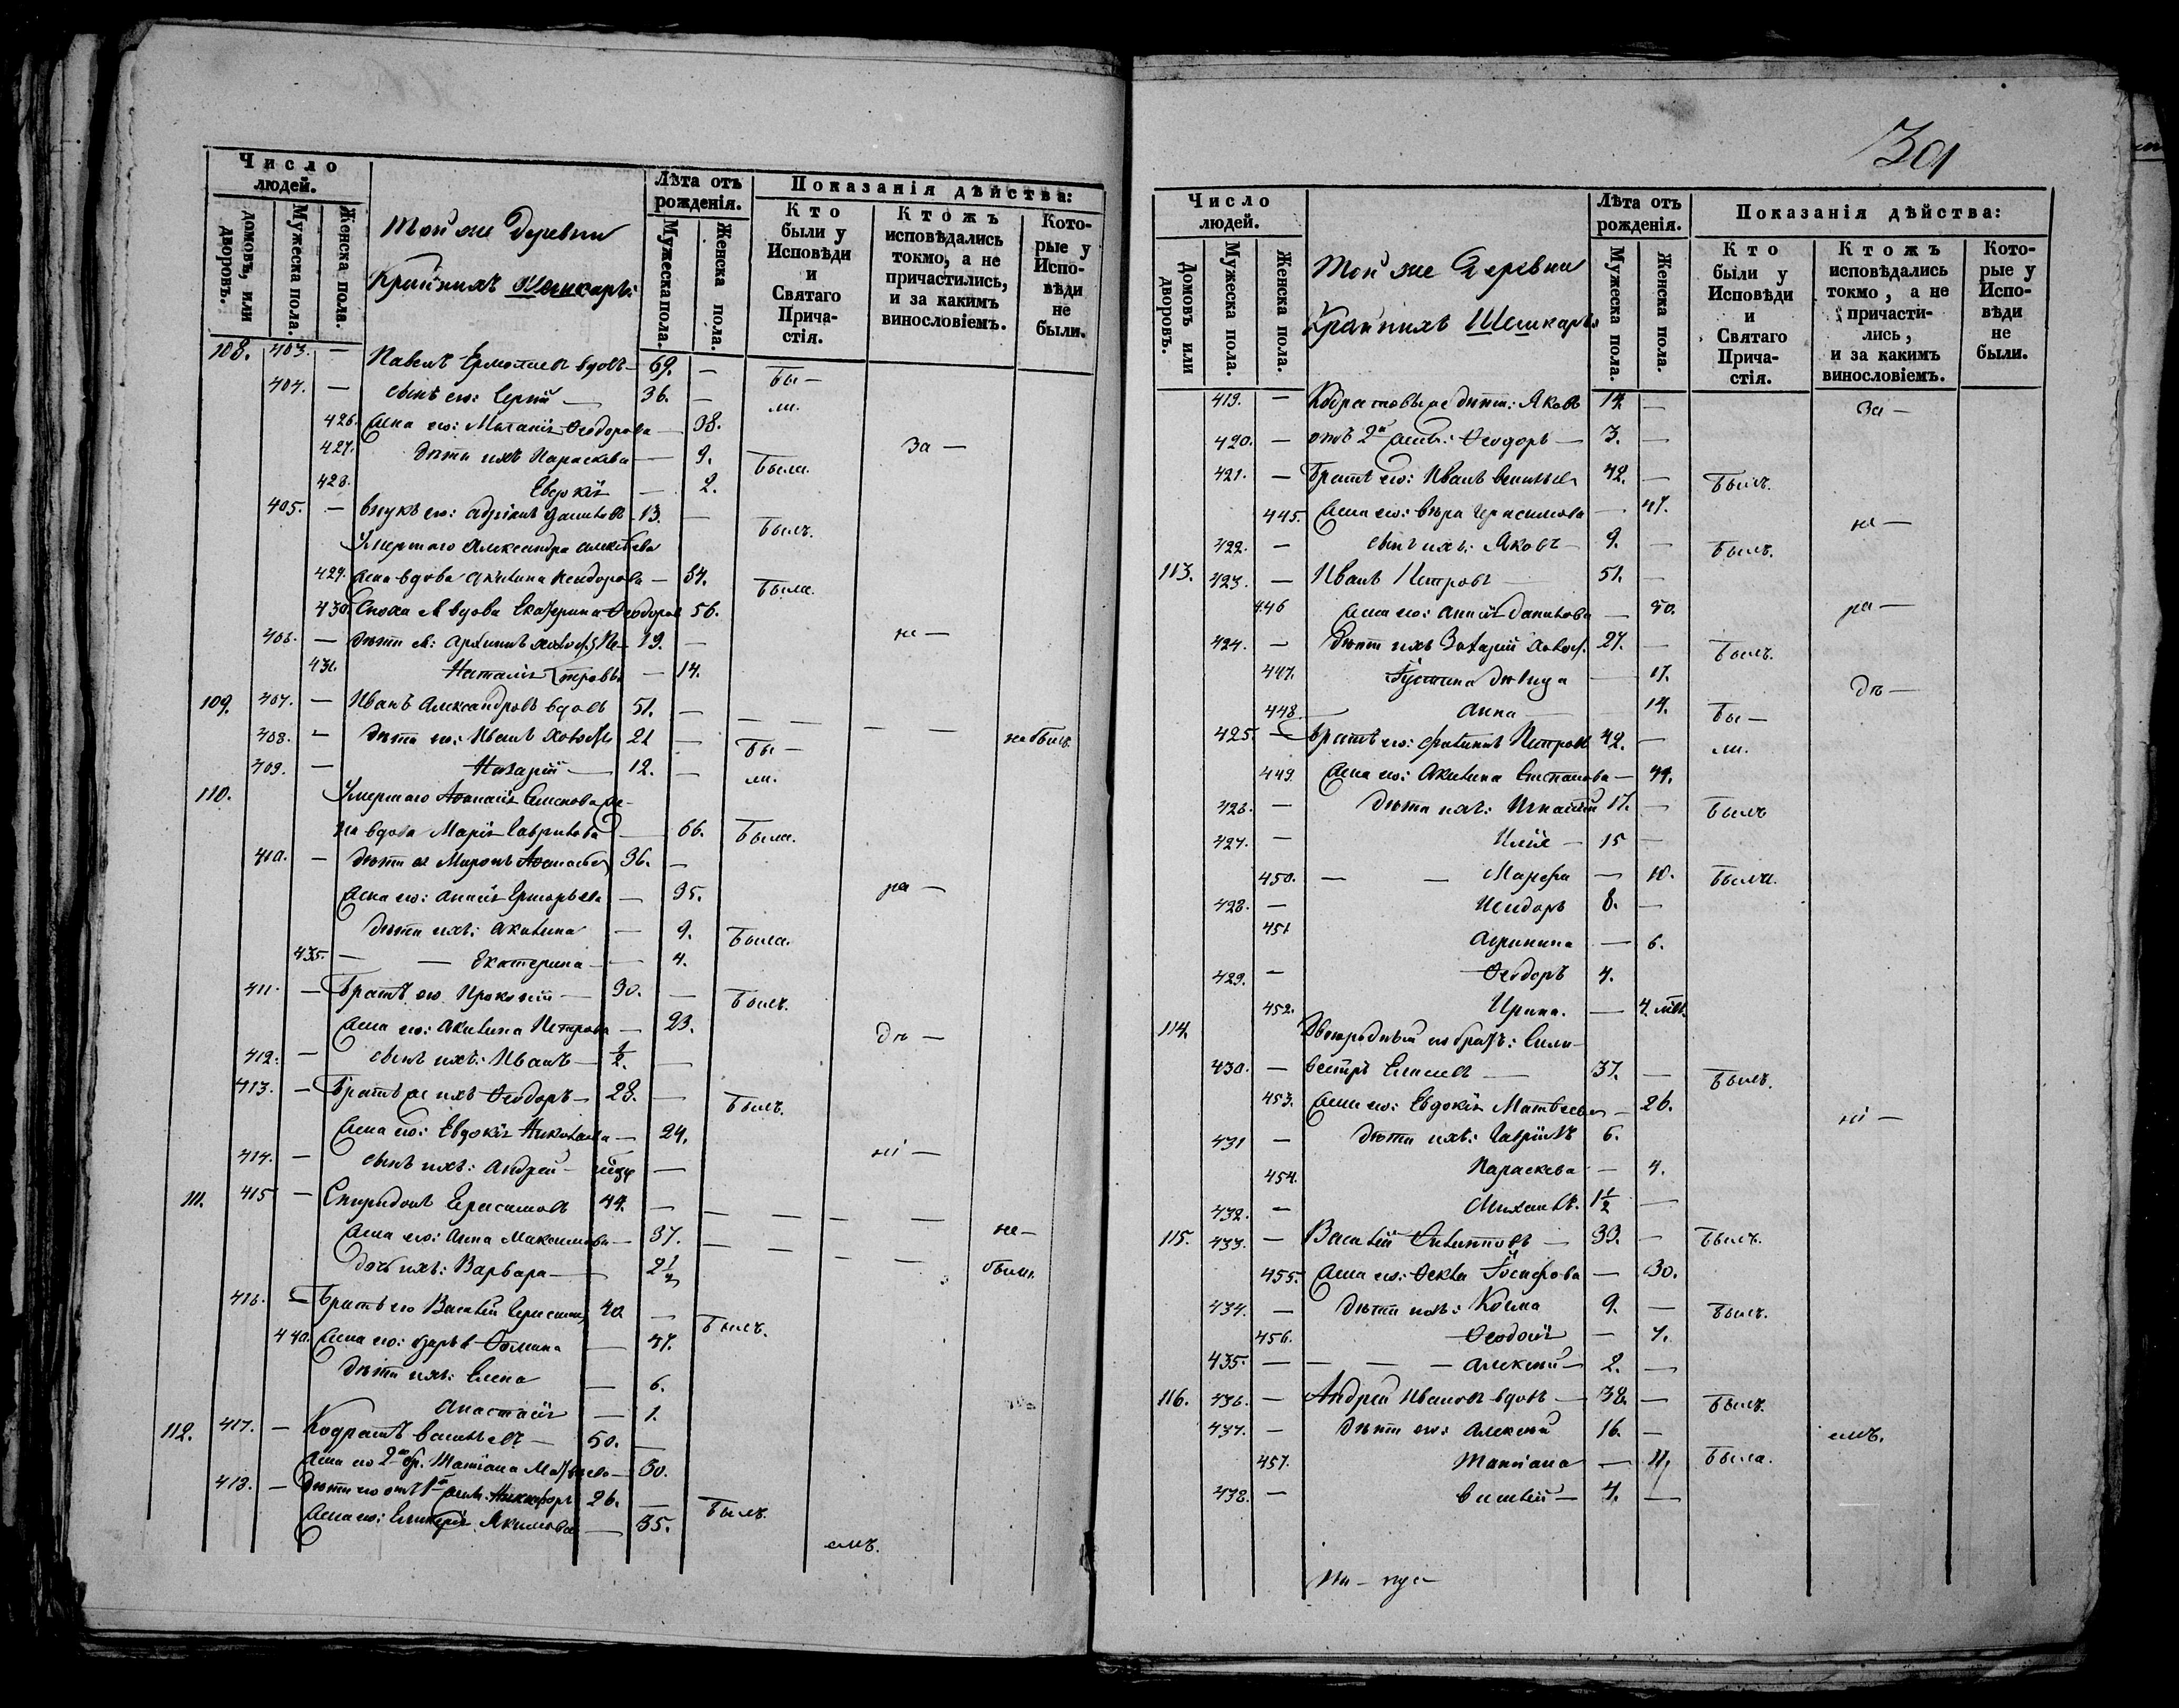 Число людей.
домовъ, или дворовъ.
Мужеска пола.
Женска пола.
Той же Деревни
Крайнихъ Шешкаръ:
Лѣта отъ рожденія.
Мужеска пола.
Женска пола.
Показанія дѣйства:
Кто были у Исповѣди и Святаго Причастія.
Ктожъ исповѣдались токмо, а не причастились, и за какимъ винословіемъ.
Которые у Исповѣди не были.
108. 403. — Павелъ Ермолаевъ вдовъ — 69. — Бы —
404. — сынъ его: Сергій — 36. — ли.
426. жена его: Маланія Ѳеодорова — 38.
427. дѣти ихъ Параскева — 9. Была. За —
428. Евдокія — 2.
405. — внукъ его: Адріанъ Даниловъ 13. — Былъ.
Умершаго Александра Алексѣева
429. жена вдова Акилина Исидорова — 34. Была.
430. Сноха вдова Екатерина Ѳеодоров 56.
406. — дѣти ея: Архипъ холос. Пе- 19. — не —
431. Наталія тровы — 14.
109. 407. — Иванъ Александровъ вдовъ 51. — — — — — не былъ.
408. — дѣти его: Иванъ холостъ 21 — Бы —
409. — Назарій — 12. — ли.
110. Умершаго Аѳанасія Семенова же-
на вдова Марія Гаврилова — 66. Была.
410. — дѣти ея Миронъ Аѳанасьев 36. —
жена его: Анисія Григорьева — 35. ра —
дѣти ихъ: Акилина — 9. Была.
435. — — Екатерина — 4.
411. — Братъ его Прокопій — 30. — Былъ.
жена его: Акилина Петрова — 23. дѣ —
412. — сынъ ихъ: Иванъ — 1/2. —
413. — Братъ же ихъ Ѳеодоръ — 28. — Былъ.
жена его: Евдокія Николаева — 24.
414. — сынъ ихъ: Андрей — — ні —
111. 415 — Спиридонъ Герасимовъ 44. — — — — — не —
жена его: Анна Максимова — 37. — — — —
дочь ихъ: Варвара — 2 1/2 были.
416. — Братъ его Василій Герасимов 40. — Былъ.
440. жена его: Ѳомина — 47.
дѣти ихъ: Елена — 6.
Анастасія — 1.
112. 417. — Кодратъ Васильевъ — 50. —
жена его 2 бр. Татіана Матвеева — 50.
418. — дѣти его отъ 1й жены: Никифоръ 26. — Былъ.
жена его: Якимова — 35. емъ.
301
Число людей.
Домовъ или дворовъ.
Мужеска пола.
Женска пола.
Той же Деревни
Крайнихъ Шешкаръ:
Лѣта отъ рожденія.
Мужеска пола.
Женска пола.
Показанія дѣйства:
Кто были у Исповѣди и Святаго Причастія.
Ктожъ исповѣдались токмо, а не причастились, и за какимъ винословіемъ.
Которые у Исповѣди не были.
419. — Кодратовы же дѣти: Яковъ 14. — За —
420. — отъ 2й жены: Ѳеодоръ — 3. —
421. — Братъ его: Иванъ Васильев 42. — Былъ.
445. жена его: Вѣра Герасимова — 41. не —
422. — сынъ ихъ: Яковъ — 9. — Былъ.
113. 423. — Иванъ Петровъ — 51. —
446 жена его: Анисія Данилова — 50. ра —
424. — дѣти ихъ Захарій холос. 27. — Былъ.
447. Іустина дѣвица — 17. дѣ —
448. Анна — 14. Бы —
425. — Братъ его: Филипъ Петровъ 42. — ли.
449. жена его: Акилина Степанова — 41.
426. — дѣти ихъ: Игнатій 17. — Былъ
427. — Илія — 15 —
450. — — Марѳа — 10. Была.
428. — Исидоръ 8. —
451 Агрипина — 6.
429. — Ѳеодоръ 4.
452. Ирина. — 4. мѣс.
114. Двоюродный ихъ братъ: Силь-
430. — вестръ Елисеевъ — 37. — Былъ.
453. жена его: Евдокія Матвеева — 26. ні —
431 — дѣти ихъ: Гавріилъ 6.
454. Параскева — 4.
432. — Михаилъ. 1 1/2 —
115. 433. — Василій — 33. — Былъ.
455. жена его: Ѳекла Іосифова — 30.
434. — дѣти ихъ: Косма 9. — Былъ.
456. Ѳеодосія — 7.
435. — — — — Алексѣй — 2. —
116. 436. — Андрей Ивановъ вдовъ — 38. — Былъ.
437. — дѣти его: Алексѣй 16. — емъ.
457. Татіана — 11. Была.
438. — Василій — 4. —